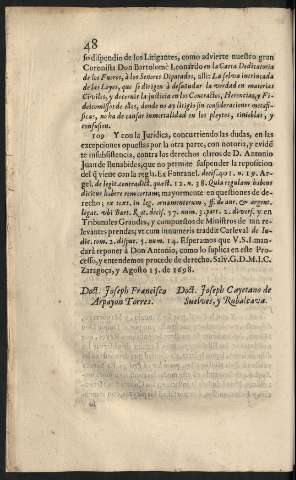 48
so dispendio de los Litigantes, como advierte nuestro gran
Coronista Don Bartolomè Leonardo en la Carta Dedicatoria
de los Fueros, à los Señores Diputados, alli: La selva intrincada
de las Leyes, que se dirigen à desnudar la verdad en materias
Civiles, y decernir la justicia en los Contractos, Herencias, y Fi-
deicomissos de ellas, donde no ay litigio sin consideraciones metafi-
sicas, no ha de causar inmortalidad en los pleytos, tinieblas, y
confusion.
109 Y con la Juridica, concurriendo las dudas, en las
excepciones opuestas por la otra parte, con notoria, y eviden-
te insubsistencia, contra los derechos claros de D. Antonio
Juan de Benabides, que no permite suspender la reposicion
del q̃ viene con la regla. Ex Fontanel. decis. 401. n. 19. Ar-
gel. de legit. contradict. quæst. 12. n. 38. Quia regulam habens
dicitur habere rem certam, mayormente en questiones de de-
recho; ex text. in leg. ornamentorum, ff. de aur. & argent.
legat. ubi Bart. Rot. decis. 37. num. 3. part. 2. divers. y en
Tribunales Grandes, y compuestos de Ministros de tan re-
levantes prendas; vt con innumeris traddit Carleval de Iu-
dic. tom. 2. disput. 5. num. 14. Esperamos que V. S. I. man-
darà reponer à Don Antonio, como lo suplica en este Pro-
cesso, y entendemos procede de derecho. Salv. G. D. M. I. C.
Zaragoça, y Agosto 15. de 1698.
Doct. Joseph Francisco
Arpayon Torres.
Doct. Joseph Cayetano de
Suelves, y Rubalcava.